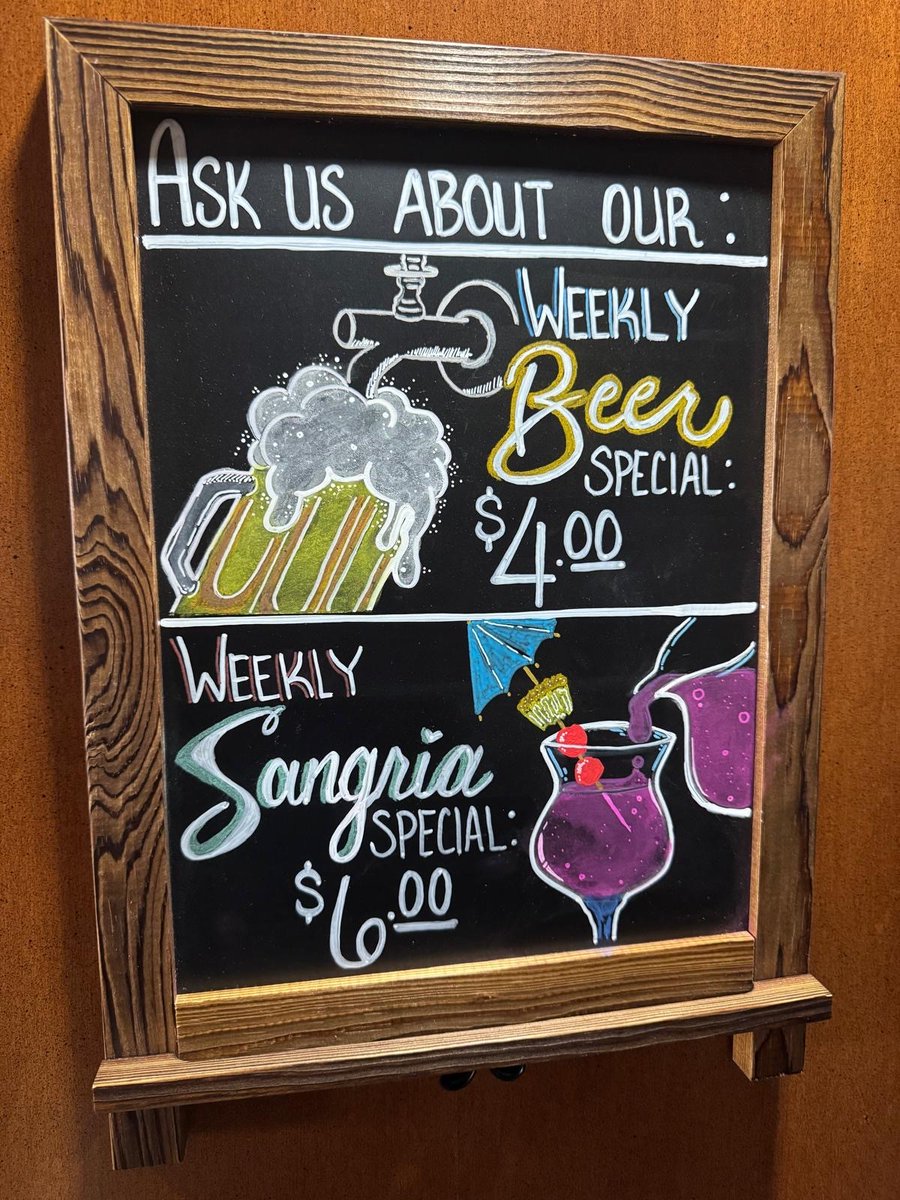 ASK US ABOUT OUR:
WEEKLY
Beer
SPECIAL:
$4.00
WEEKLY
Sangria
SPECIAL:
$6.00